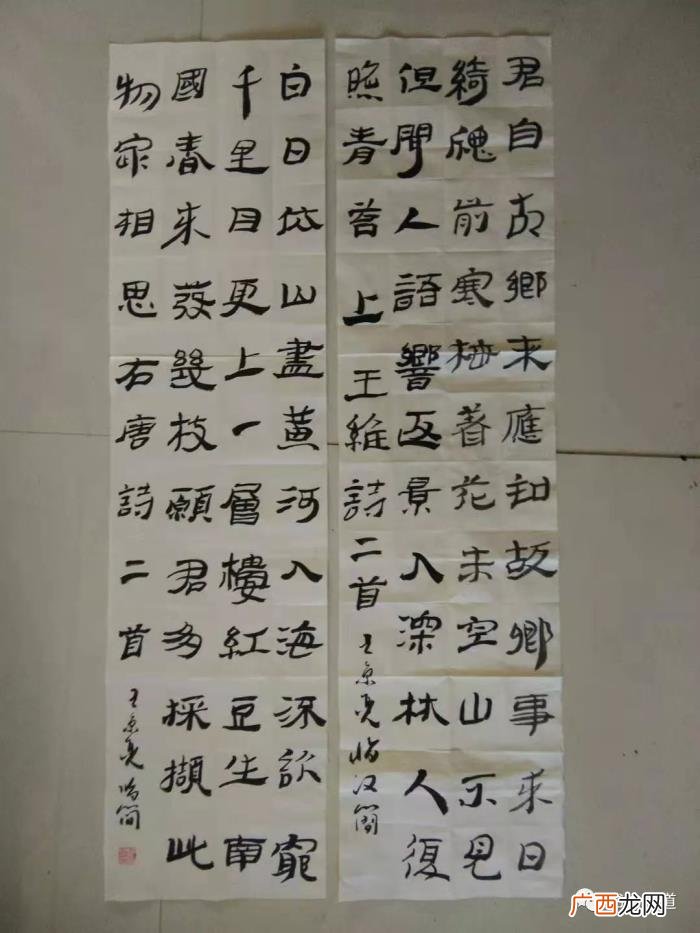 君自故鄉来應知故鄉事来日
綺牕前寒梅著花未空山不見
但聞人語響返景入深林人復
照青苔上王維詩二首王京亮临汉简
白日依山盡黄河入海流欲窮
千里目更上一層樓紅豆生南
國春来發幾枝願君多採擷此
物最相思右唐詩二首王京亮临简
道
广西龙网